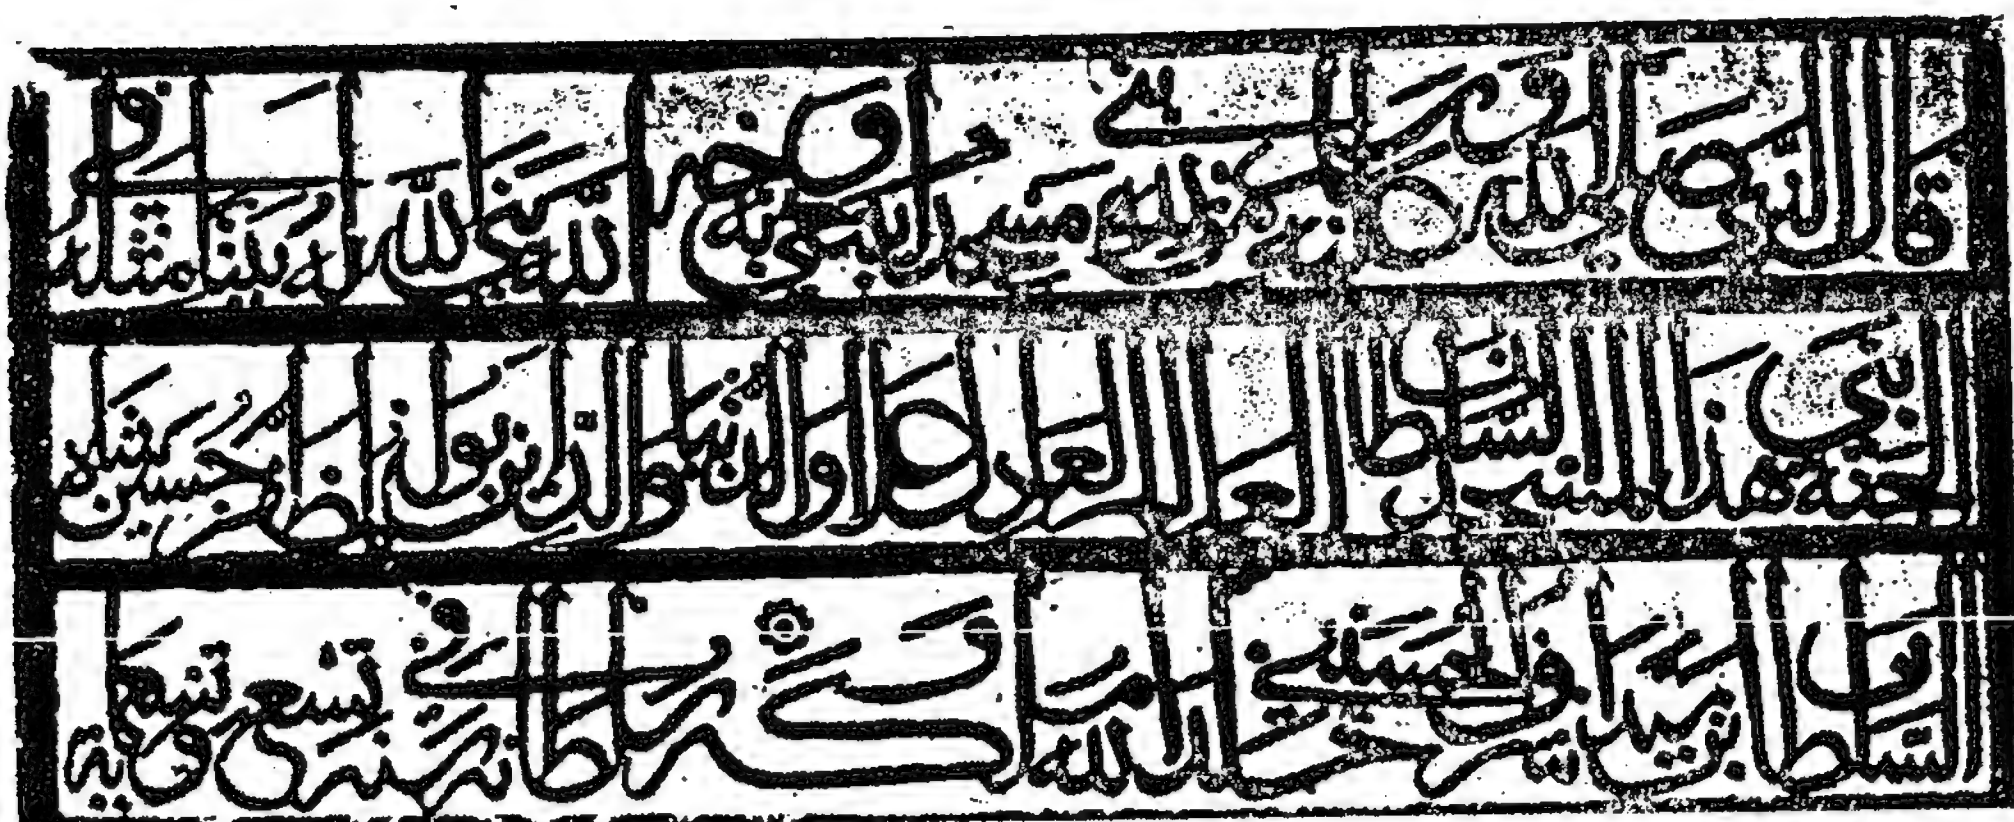 قال النبي صلى الله عليه وسلم من بنى لله مسجدا يبتغي به وجه الله بنى الله له بيتا مثله في
الجنة بنى هذا المسجد السلطان العادل علا الدنيا والدين ابو المظفر حسين شاه
السلطان بن سيد اشرف الحسيني خلد الله ملكه وسلطانه في سنة تسع وتسعماية